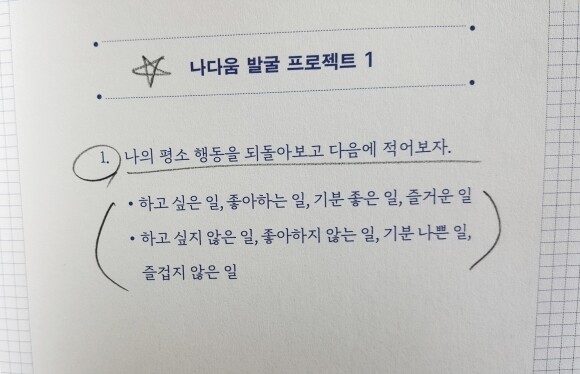 나다움 발굴 프로젝트 1
1. 나의 평소 행동을 되돌아보고 다음에 적어보자.
• 하고 싶은 일, 좋아하는 일, 기분 좋은 일, 즐거운 일
• 하고 싶지 않은 일, 좋아하지 않는 일, 기분 나쁜 일,
즐겁지 않은 일